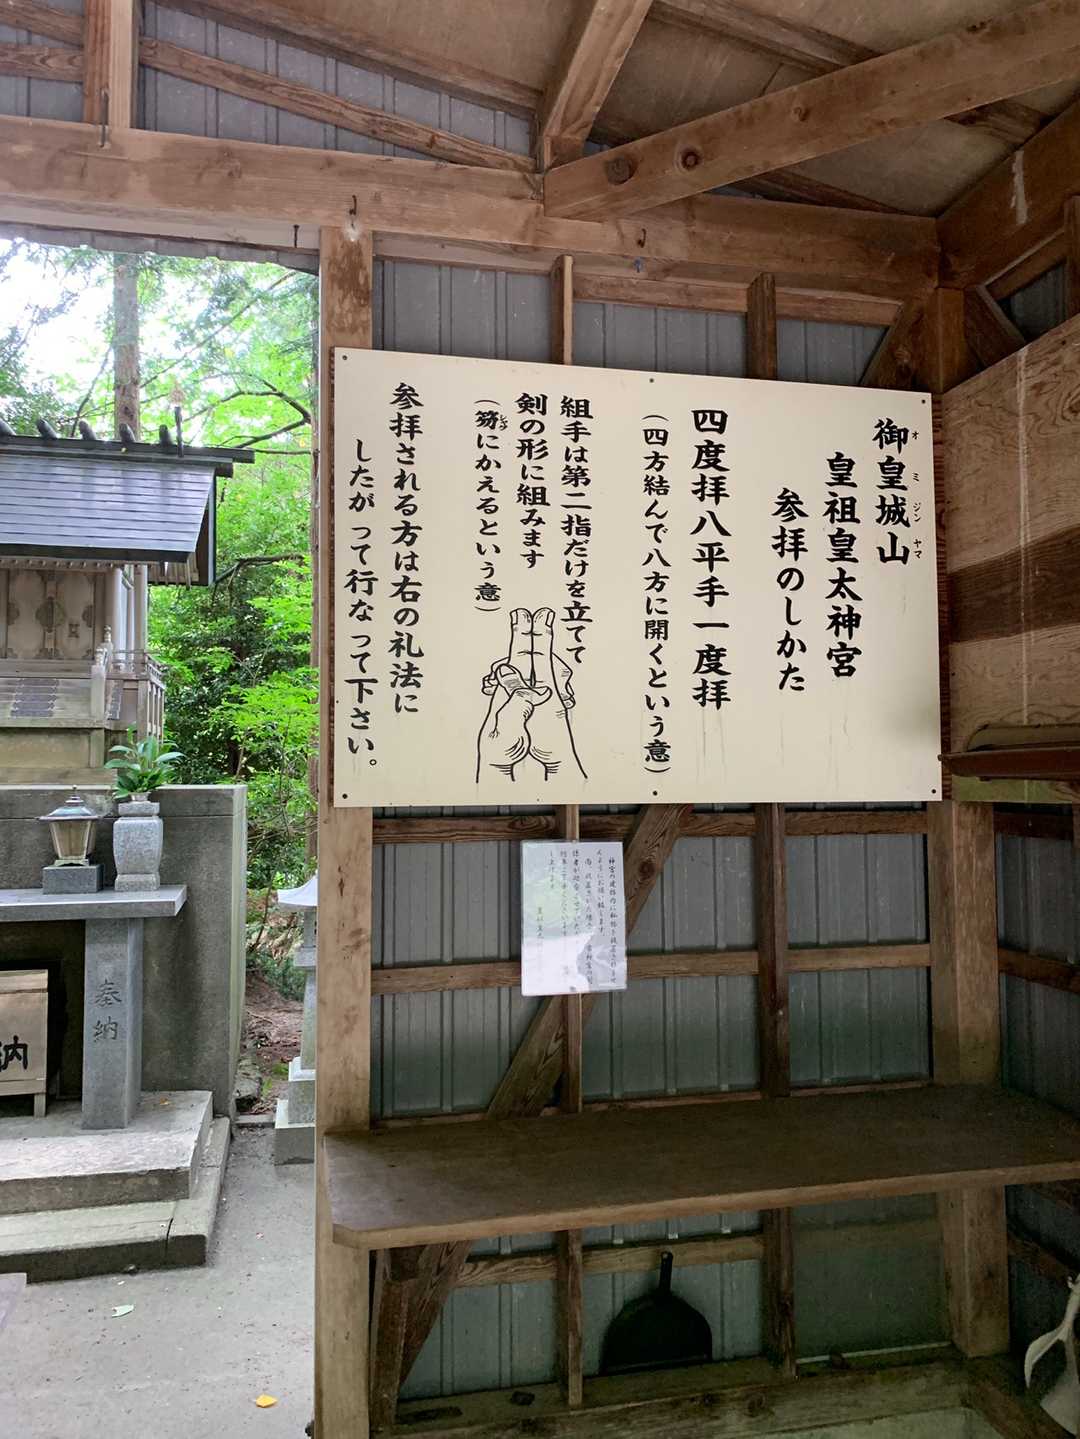 御皇城山
オミジンヤマ
皇祖皇太神宮
参拝のしかた
四度拝八平手一度拝
(四方結んで八方に開くという意)
組手は第二指だけを立てて
剣の形に組みます
(笏にかえるという意)
シャク
参拝される方は右の礼法に
したがって行なって下さい。
奉納
納